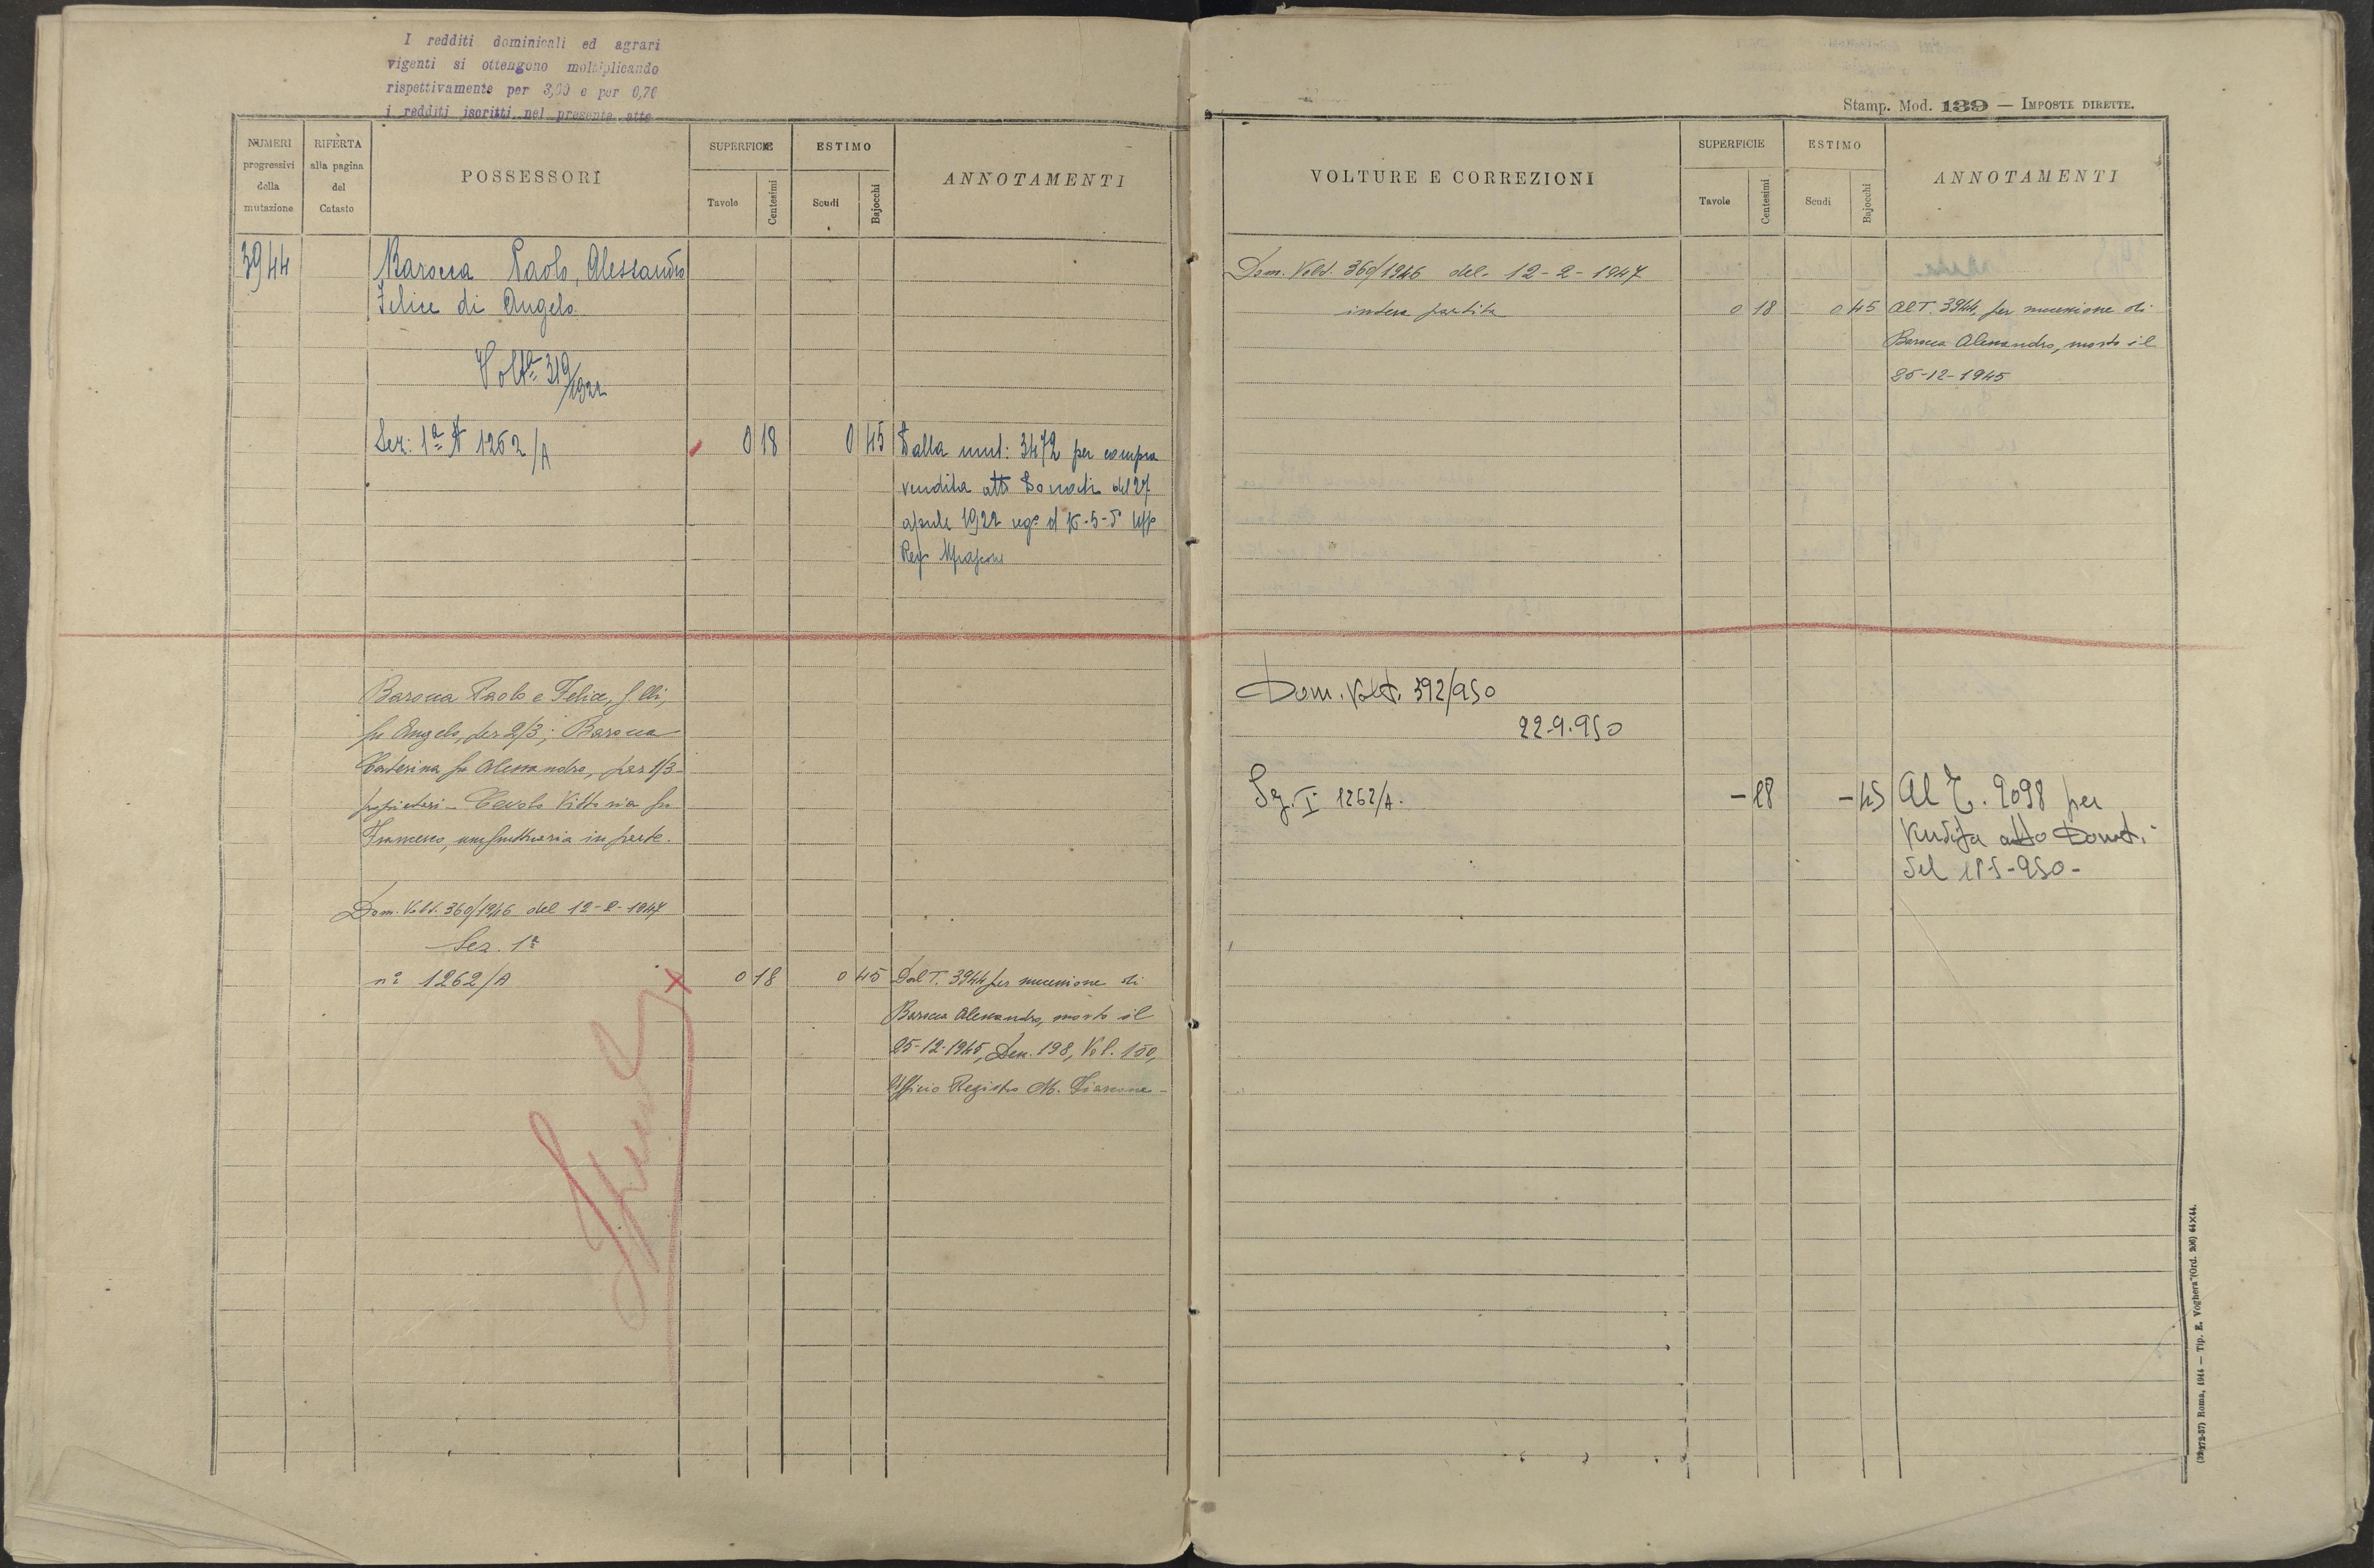 I redditi dominicali ed agrari
vigenti si ottengono moltiplicando
rispettivamente per 3,00 e per 0,70
i redditi iscritti nel presente atto
NUMERI
progressivi
della
mutazione
RIFERTA
alla pagina
del
Catasto
POSSESSORI
SUPERFICIE
Tavole
Centesimi
ESTIMO
Scudi
Bajocchi
ANNOTAMENTI
3944
Barocca Paolo, Alessandro
Felice di Angelo
Volta 319/1922
Sez: 1ª N 1262/A
0 18
0 45
Dalla mut: 3472 per compra
vendita atto Donati del 27
aprile 1922 reg°
Reg
Barocca Paolo e Felice, f.lli,
fu Angelo, per 2/3; Barocca
Caterina fu Alessandro, per 1/3
proprietari - Cavolo Vittoria fu
Francesco, usufruttuaria in parte.
Dom. Volt. 360/1946 del 12-2-1947
Sez. 1ª
n° 1262/A
0 18
0 45
Dal T. 3944 per successione di
Barocca Alessandro, morto il
25-12-1945, Den. 198, Vol. 150,
Ufficio Registro M. Fiascone-
Stamp. Mod. 139 — IMPOSTE DIRETTE.
VOLTURE E CORREZIONI
SUPERFICIE
Tavole
Centesimi
ESTIMO
Scudi
Bajocchi
ANNOTAMENTI
Dom. Volt. 360/1946 del 12-2-1947
intera partita
0 18
0 45
Al T. 3944, per successione di
Barocca Alessandro, morto il
25-12-1945
Dom. Volt. 392/950
22.9.950
Sez. I 1262/A.
- 18
- 45
Al T. 2098 per
Vendita atto Donati
del
(3ª172-57) Roma, 1914 — Tip. E. Voghera (Ord. 206) 44×44.